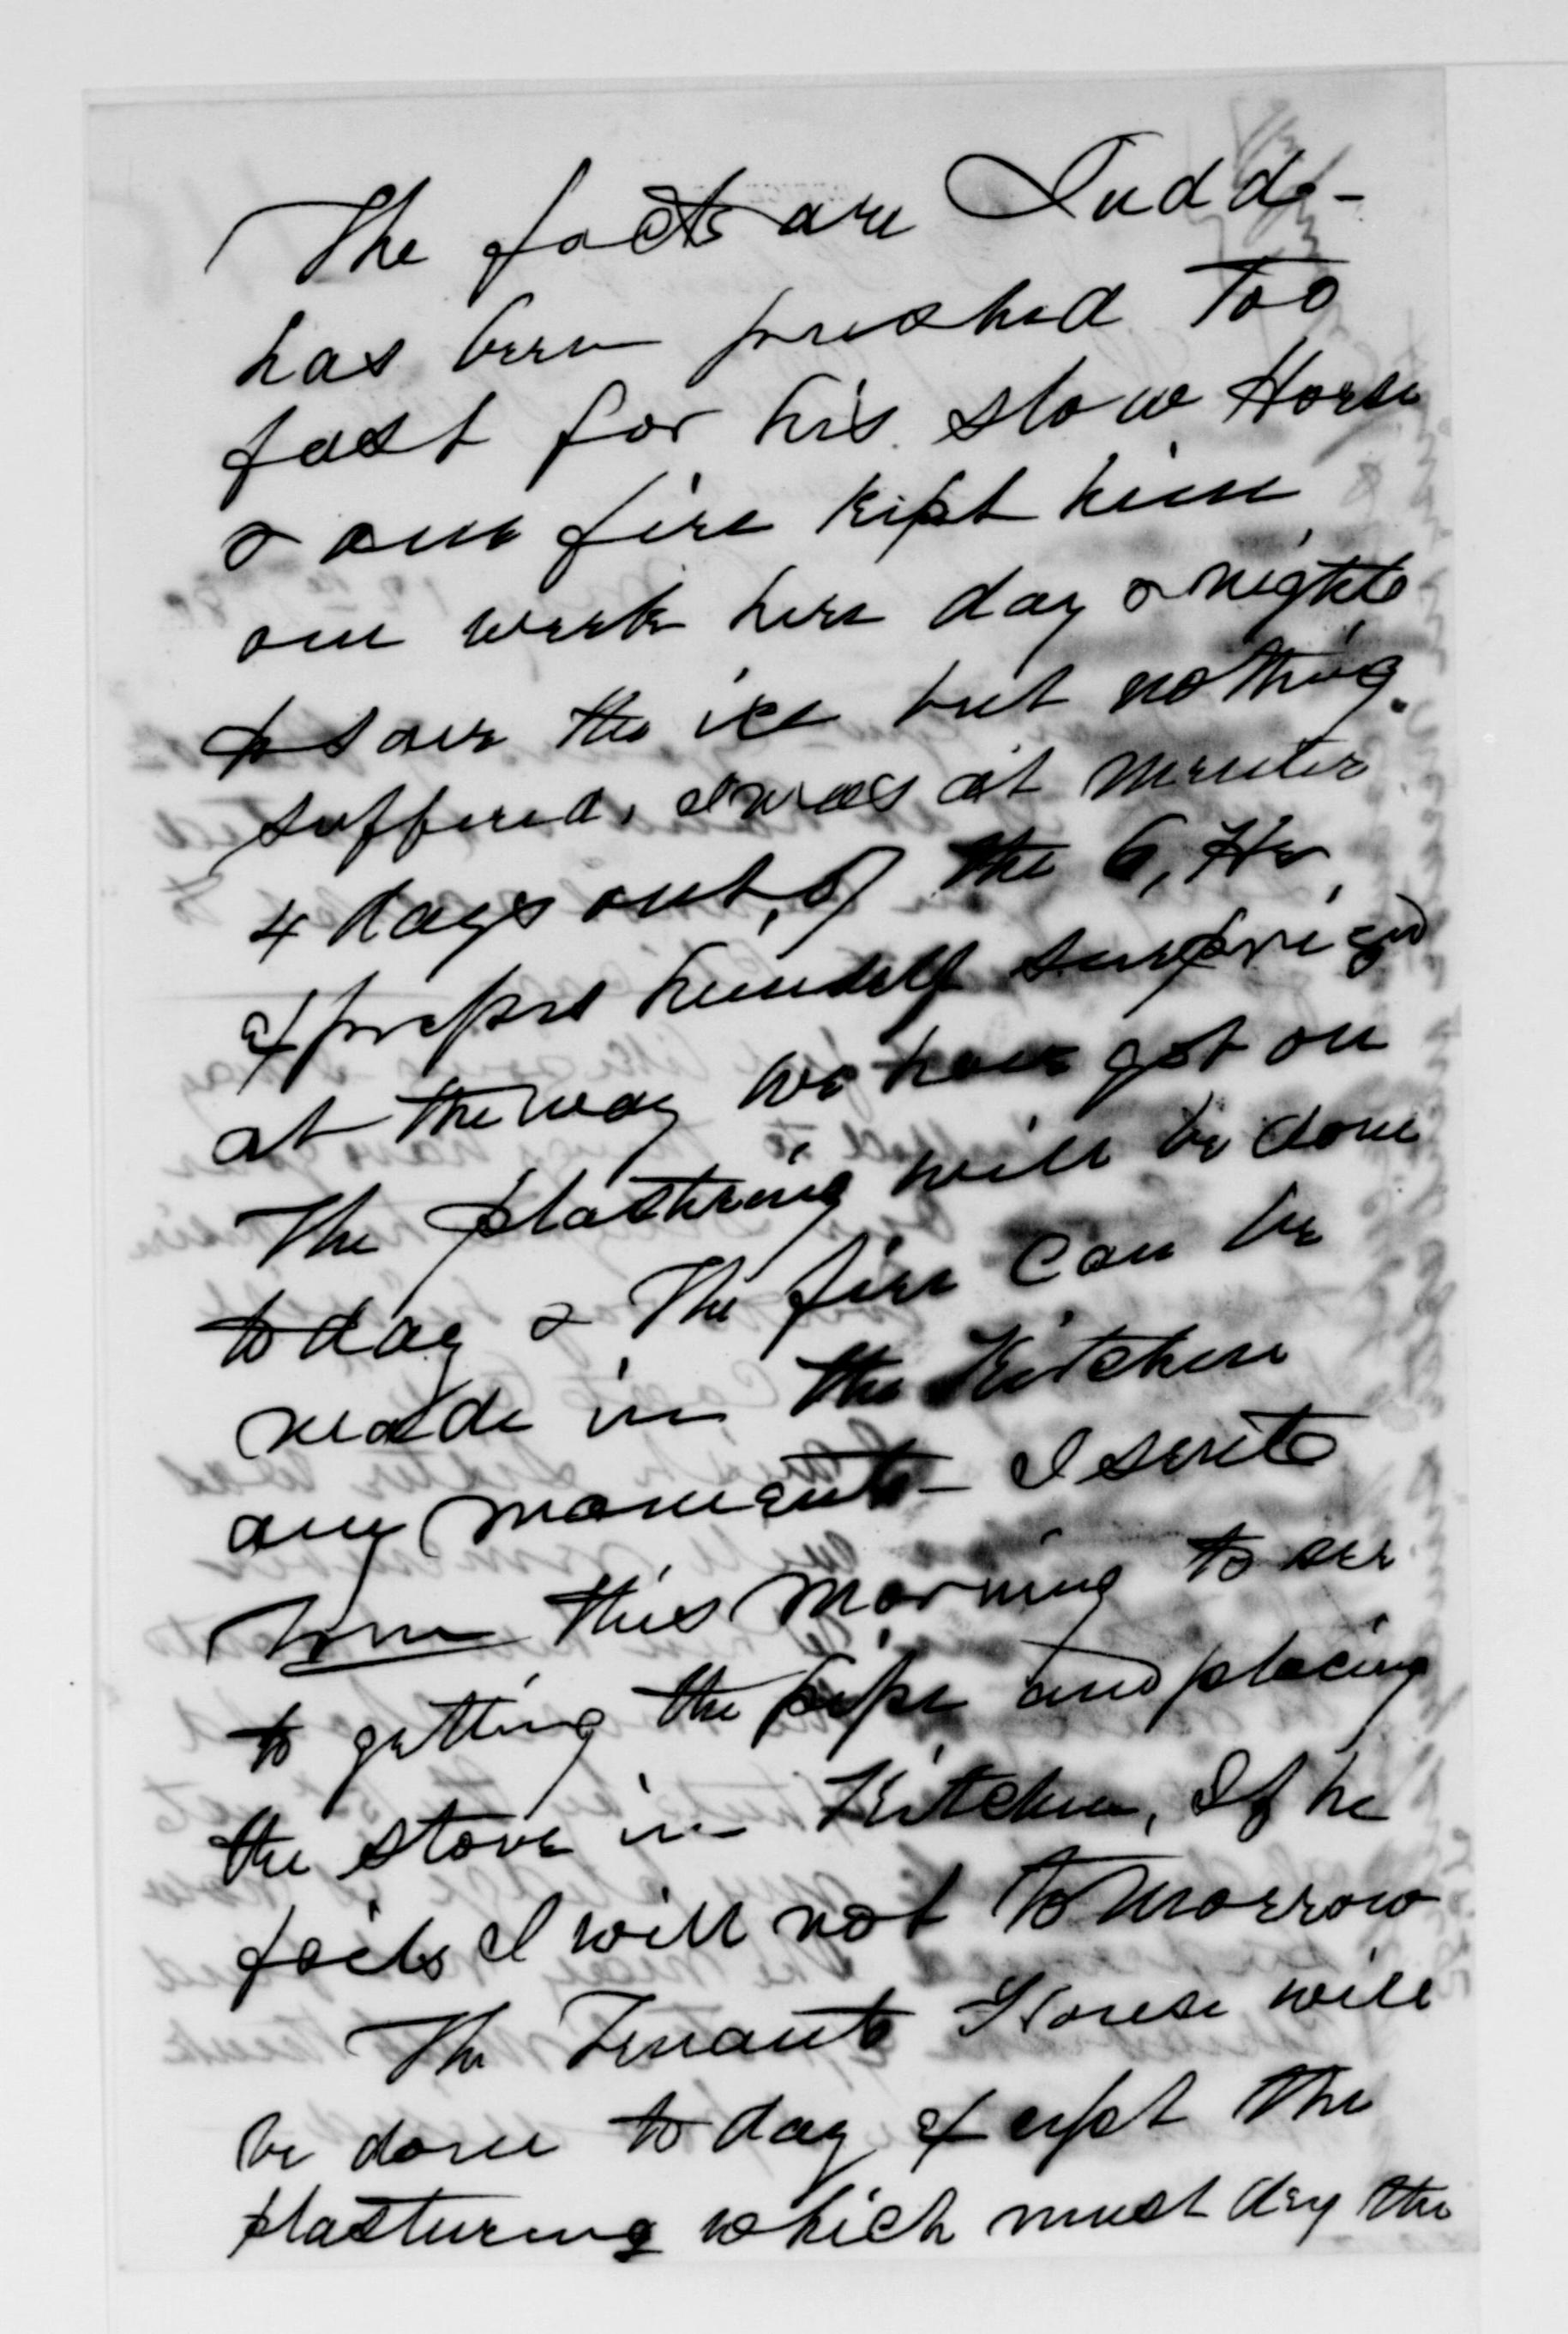 The facts are Judd-
has been pushed Too
fast for his slow Horse
& our fire kept him
one week here day & night
to save the ice but nothing
suffered, I was at
4 days out, of the 6, He
express himself surprised
at the way we have got on
The plastering will be done
to day & The fire can be
made in the Kitchen
any moment - I write
this morning to see
to getting the pipe and placing
the stove in Kitchen, If he
fails I will not to morrow
The Tenant House will
be done to day except the
plasturing which must dry the